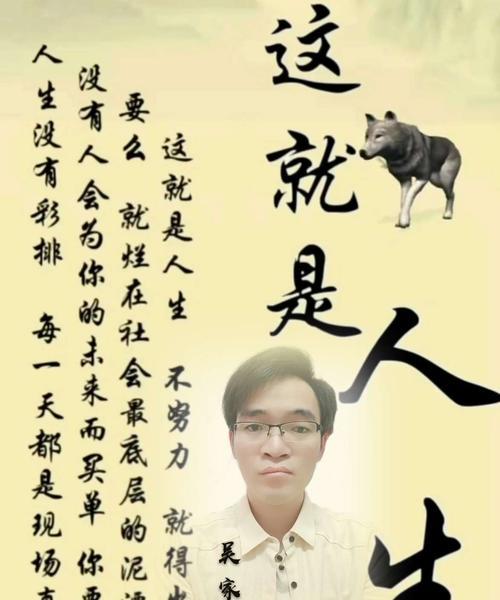 这就是
人生
吴家
这就是人生 不努力 就得
要么 就烂在社会最底层的泥
没有人会为你的未来而买单 你要
人生没有彩排 每一天都是现场